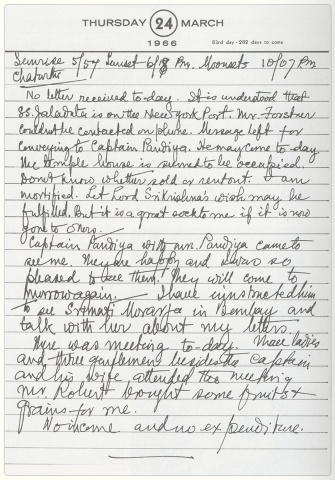 THURSDAY 24 MARCH
1966 83rd day - 282 days to come
Sunrise 5/54 Sunset 6/18 Pm. Moonsets 10/07 Pm
Chaturthi
No letter received to-day. It is understood that
SS. Jaladuta is on the New york Port. Mr. Forstner
couldnot be contacted on phone. Message left for
conveying to Captain Pandiya. He may come to-day.
The temple house is seemed to be occupied.
Dont know whether sold or rentout. I am
mortified. Let Lord Sri Krishna's wish may be
fulfilled. But it is a great sock to me if it is now
gone to others.
Captain Pandiya with Mrs. Pandiya came to
see me. They are happy and I was so
pleased to see them. They will come to
morrow again. I have instructed him
to see Srimati Morarji in Bombay and
talk with her about my letters.
There was meeting to-day. Three ladies
and three gentlemen besides the Captain
and his wife attended the meeting
Mr. Robert brought some fruits &
grains for me.
No income and no expenditure.